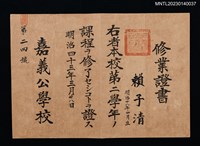 MNTL20230140037
修業證書
賴子清
右者本校第二學年ノ
課程ヲ修了セシコトヲ證ス
明治四十三年三月
嘉義公學校
第二四號